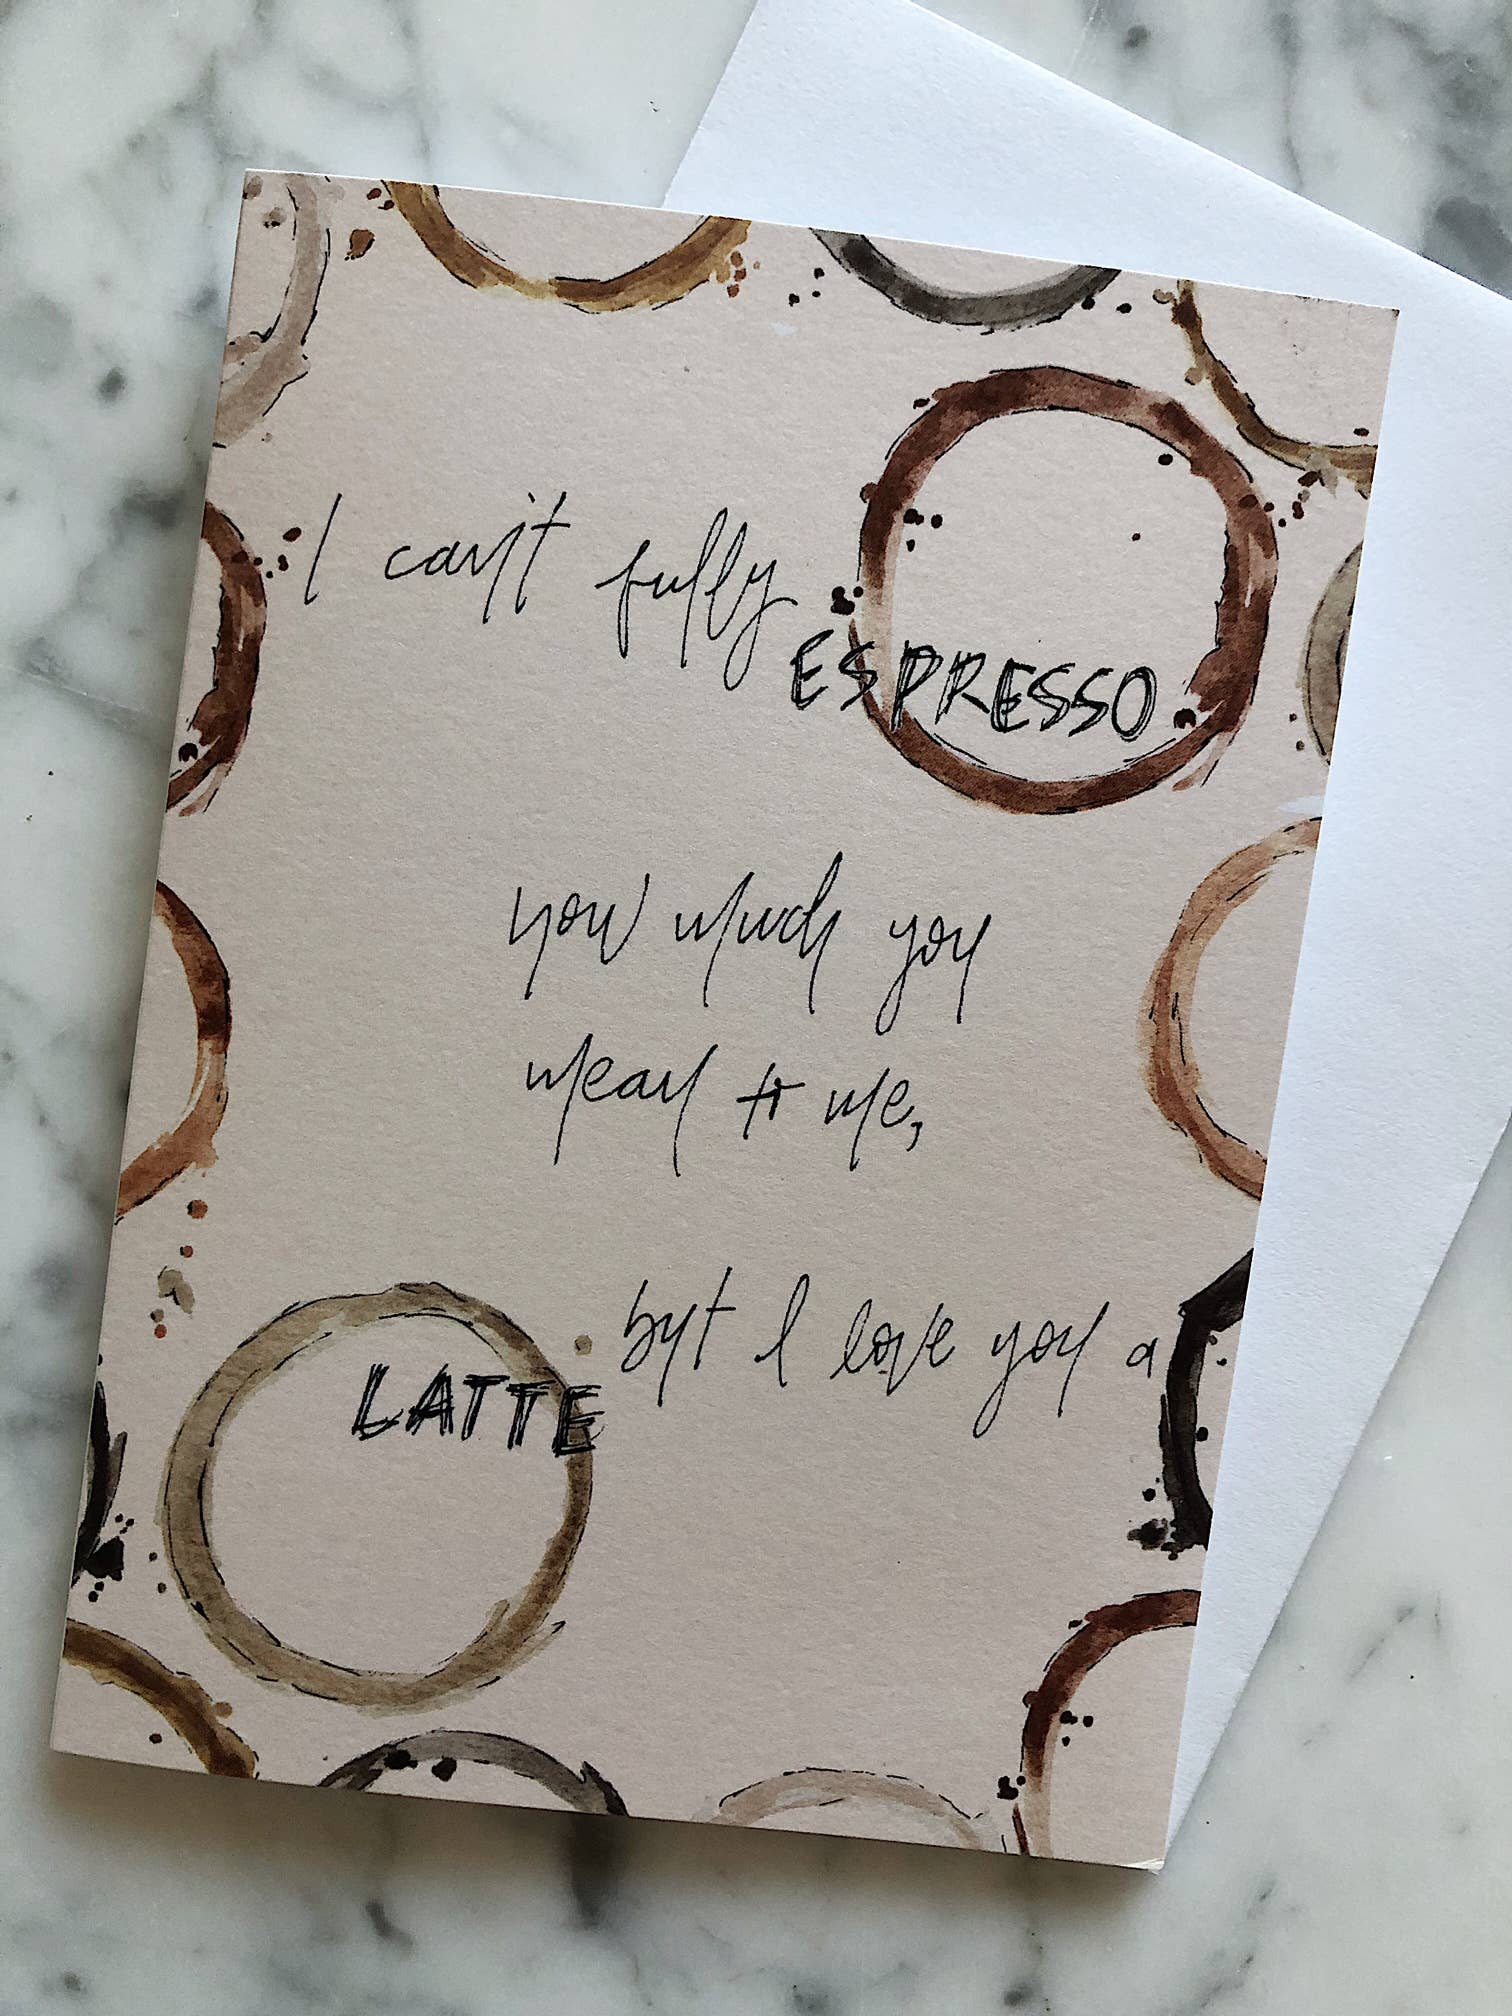 I can't fully
ESPRESSO
how much you
mean to me,
but I love you a
LATTE